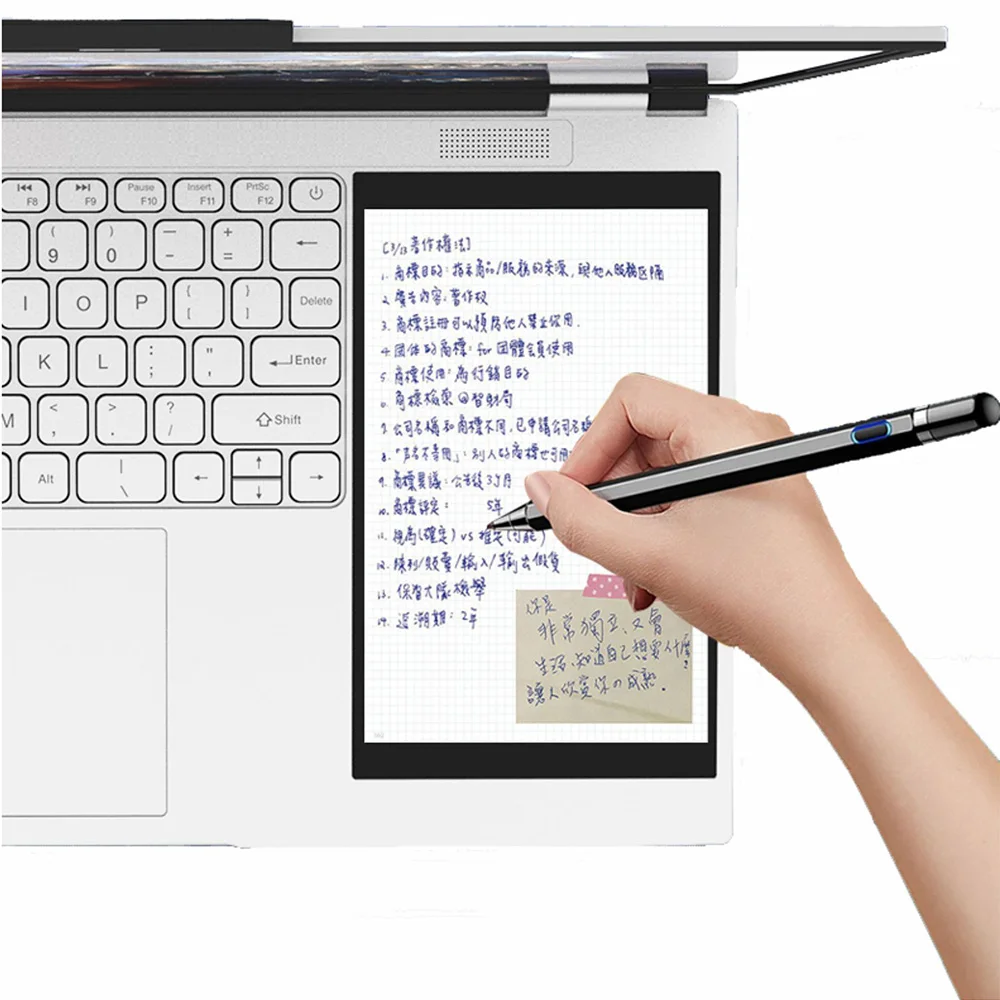 F8
F9
Pause F10
Insert F11
PrtSc F12
( 9
) 0
– −
+ =
I
O
P
{ [
} ]
Delete
K
L
: ;
" '
Enter
M
< ,
> .
? /
Shift
Alt
| \
[3/13著作權法]
1. 商標目的:指示商品/服務的來源,與他人服務區隔
2. 廣告內容:著作权
3. 商標註冊可以預防他人禁止使用.
4. 团体的商標: for 团體會員使用
5. 商標使用:為行銷目的
6. 商標檢索@智財局
7. 公司名稱和商標不同,已申請公司名稱
8. 「善意不専用」:別人的商標也可用
9. 商標異議:公告後3ケ月
10. 商標評定: 5年
11. 視為(確定) vs 推定(可能)
12. 陳列/販賣/輸入/輸出假貨
13. 保智大隊檢舉
14. 追溯期:2年
你是
非常獨立,又會
生活.知道自己想要什麼?
讓人欣賞你の成熟.